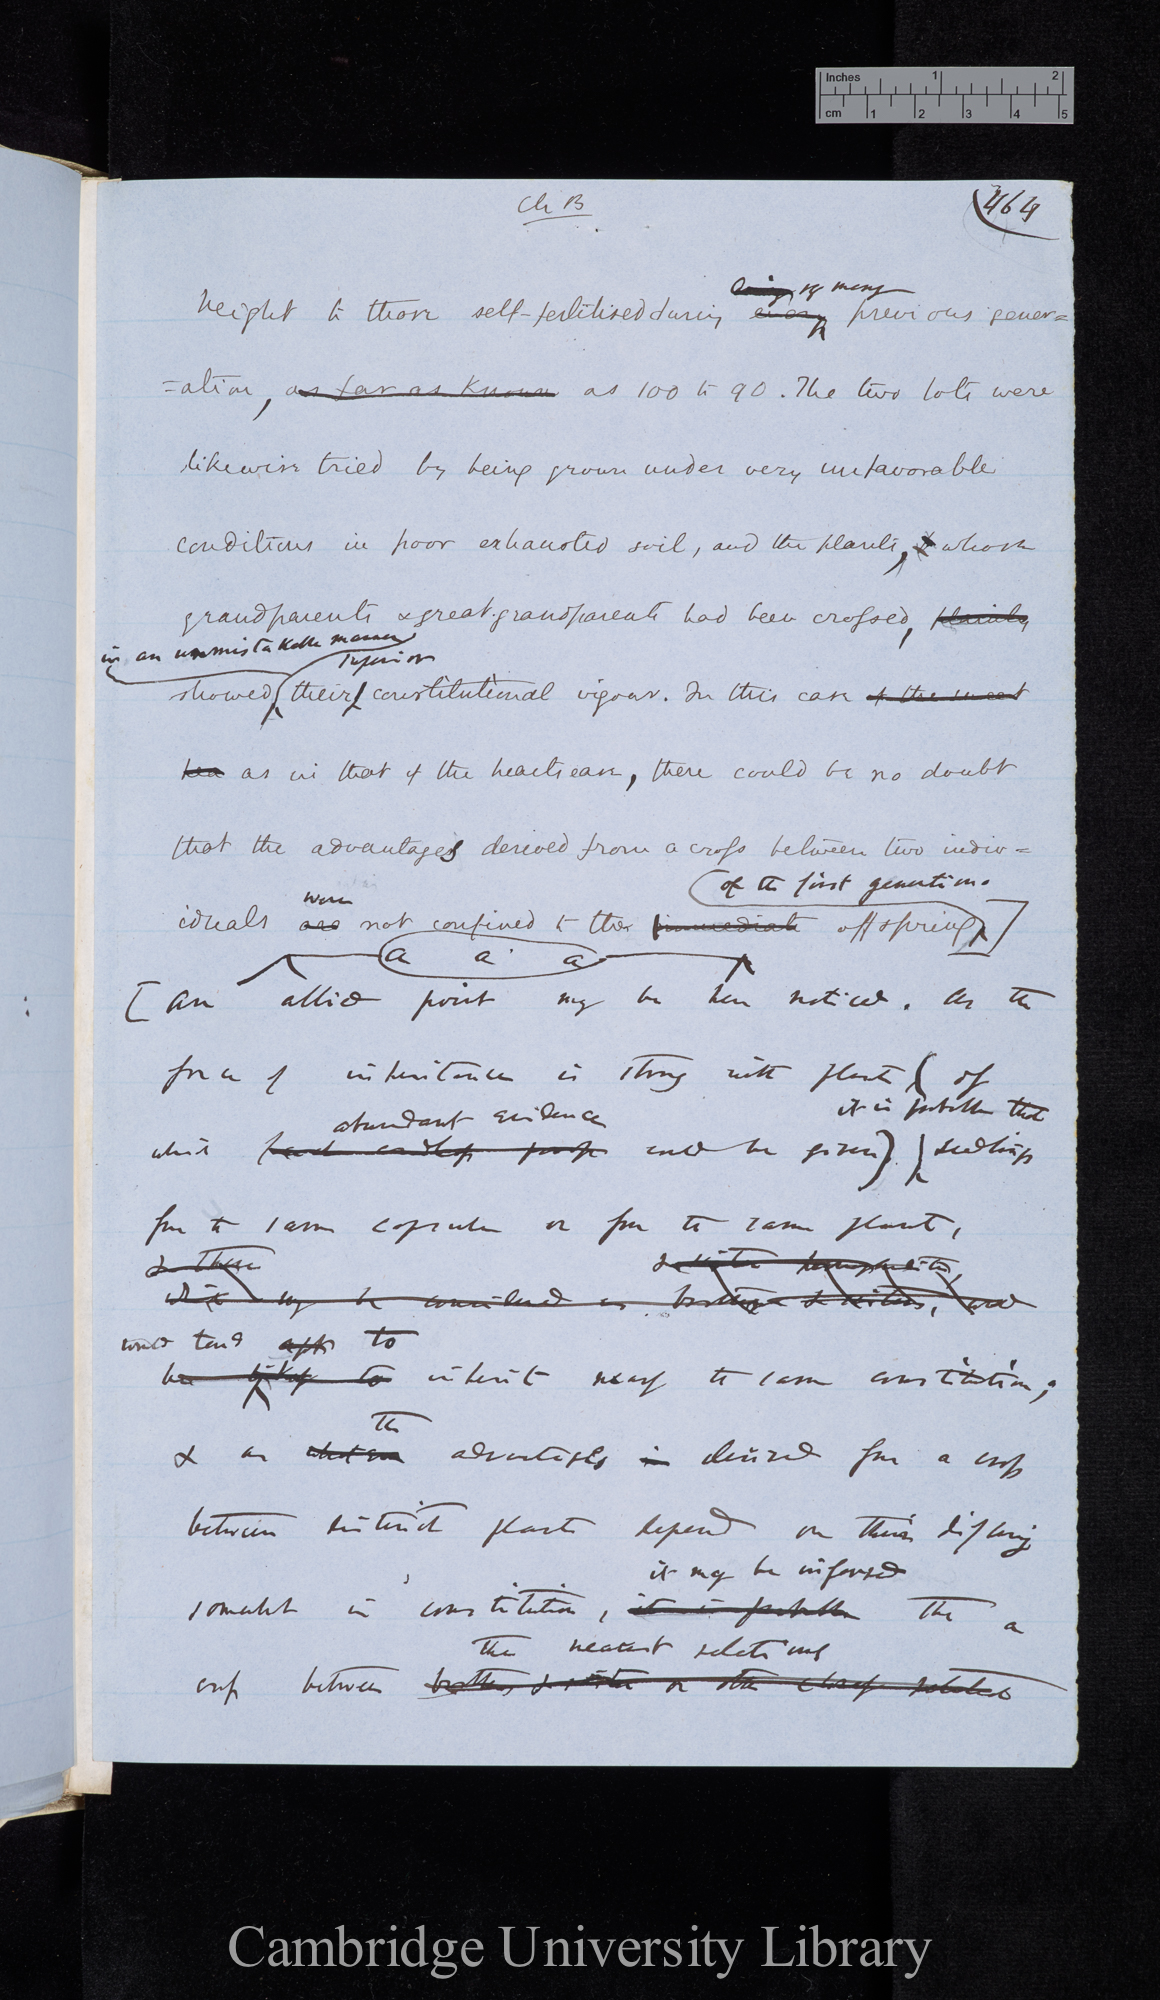 Inches 1 2
cm 1 2 3 4 5
Ch B
464
many
height to those self-fertilised during every previous gener=
=ation, as far as known as 100 to 90. The two lots were
likewise tried by being grown under very unfavorable
conditions in poor exhausted soil, and the plants, whose
grandparents & great-grandparents had been crossed, plainly
in an unmistakable manner
superior
showed their constitutional vigour. In this case of the sweet
pea as in that of the heartsease, there could be no doubt
that the advantages derived from a cross between two indiv=
of the first generation.
were
iduals are not confined to the immediate offspring]
a a a
[An allied point may be here noticed. As the
force of inheritance is strong with plants (of
abundant evidence
it is probable that
which proofs could be given) seedlings
from the same capsule or from the same plant,
& these
& sisters
which may be considered as brothers & sisters, would
would tend apt to
be likely to inherit nearly the same constitution;
the
& as advantages is derived from a cross
between distinct plants depend on their differing
it may be inferred
somewhat in constitution, it is probable that a
the nearest relations
cross between brothers & sisters or other closely related
Cambridge University Library